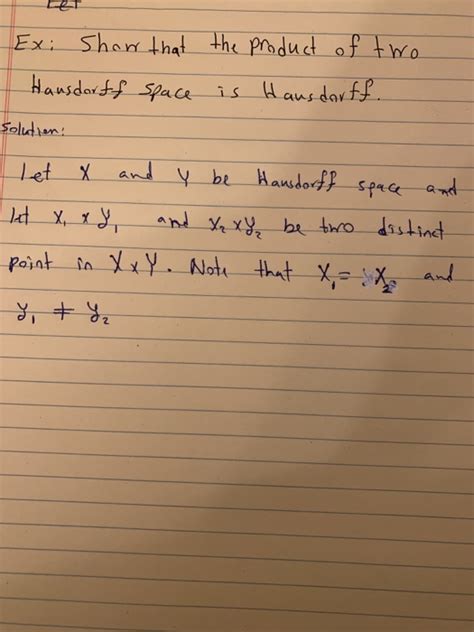 Let
Ex: Show that the product of two
Hausdorff space is Hausdorff.
Solution:
Let X and Y be Hausdorff space and
let x₁ x y₁ and x₂ x y₂ be two distinct
point in X x Y. Note that x₁ = x₂ and
y₁ ≠ y₂